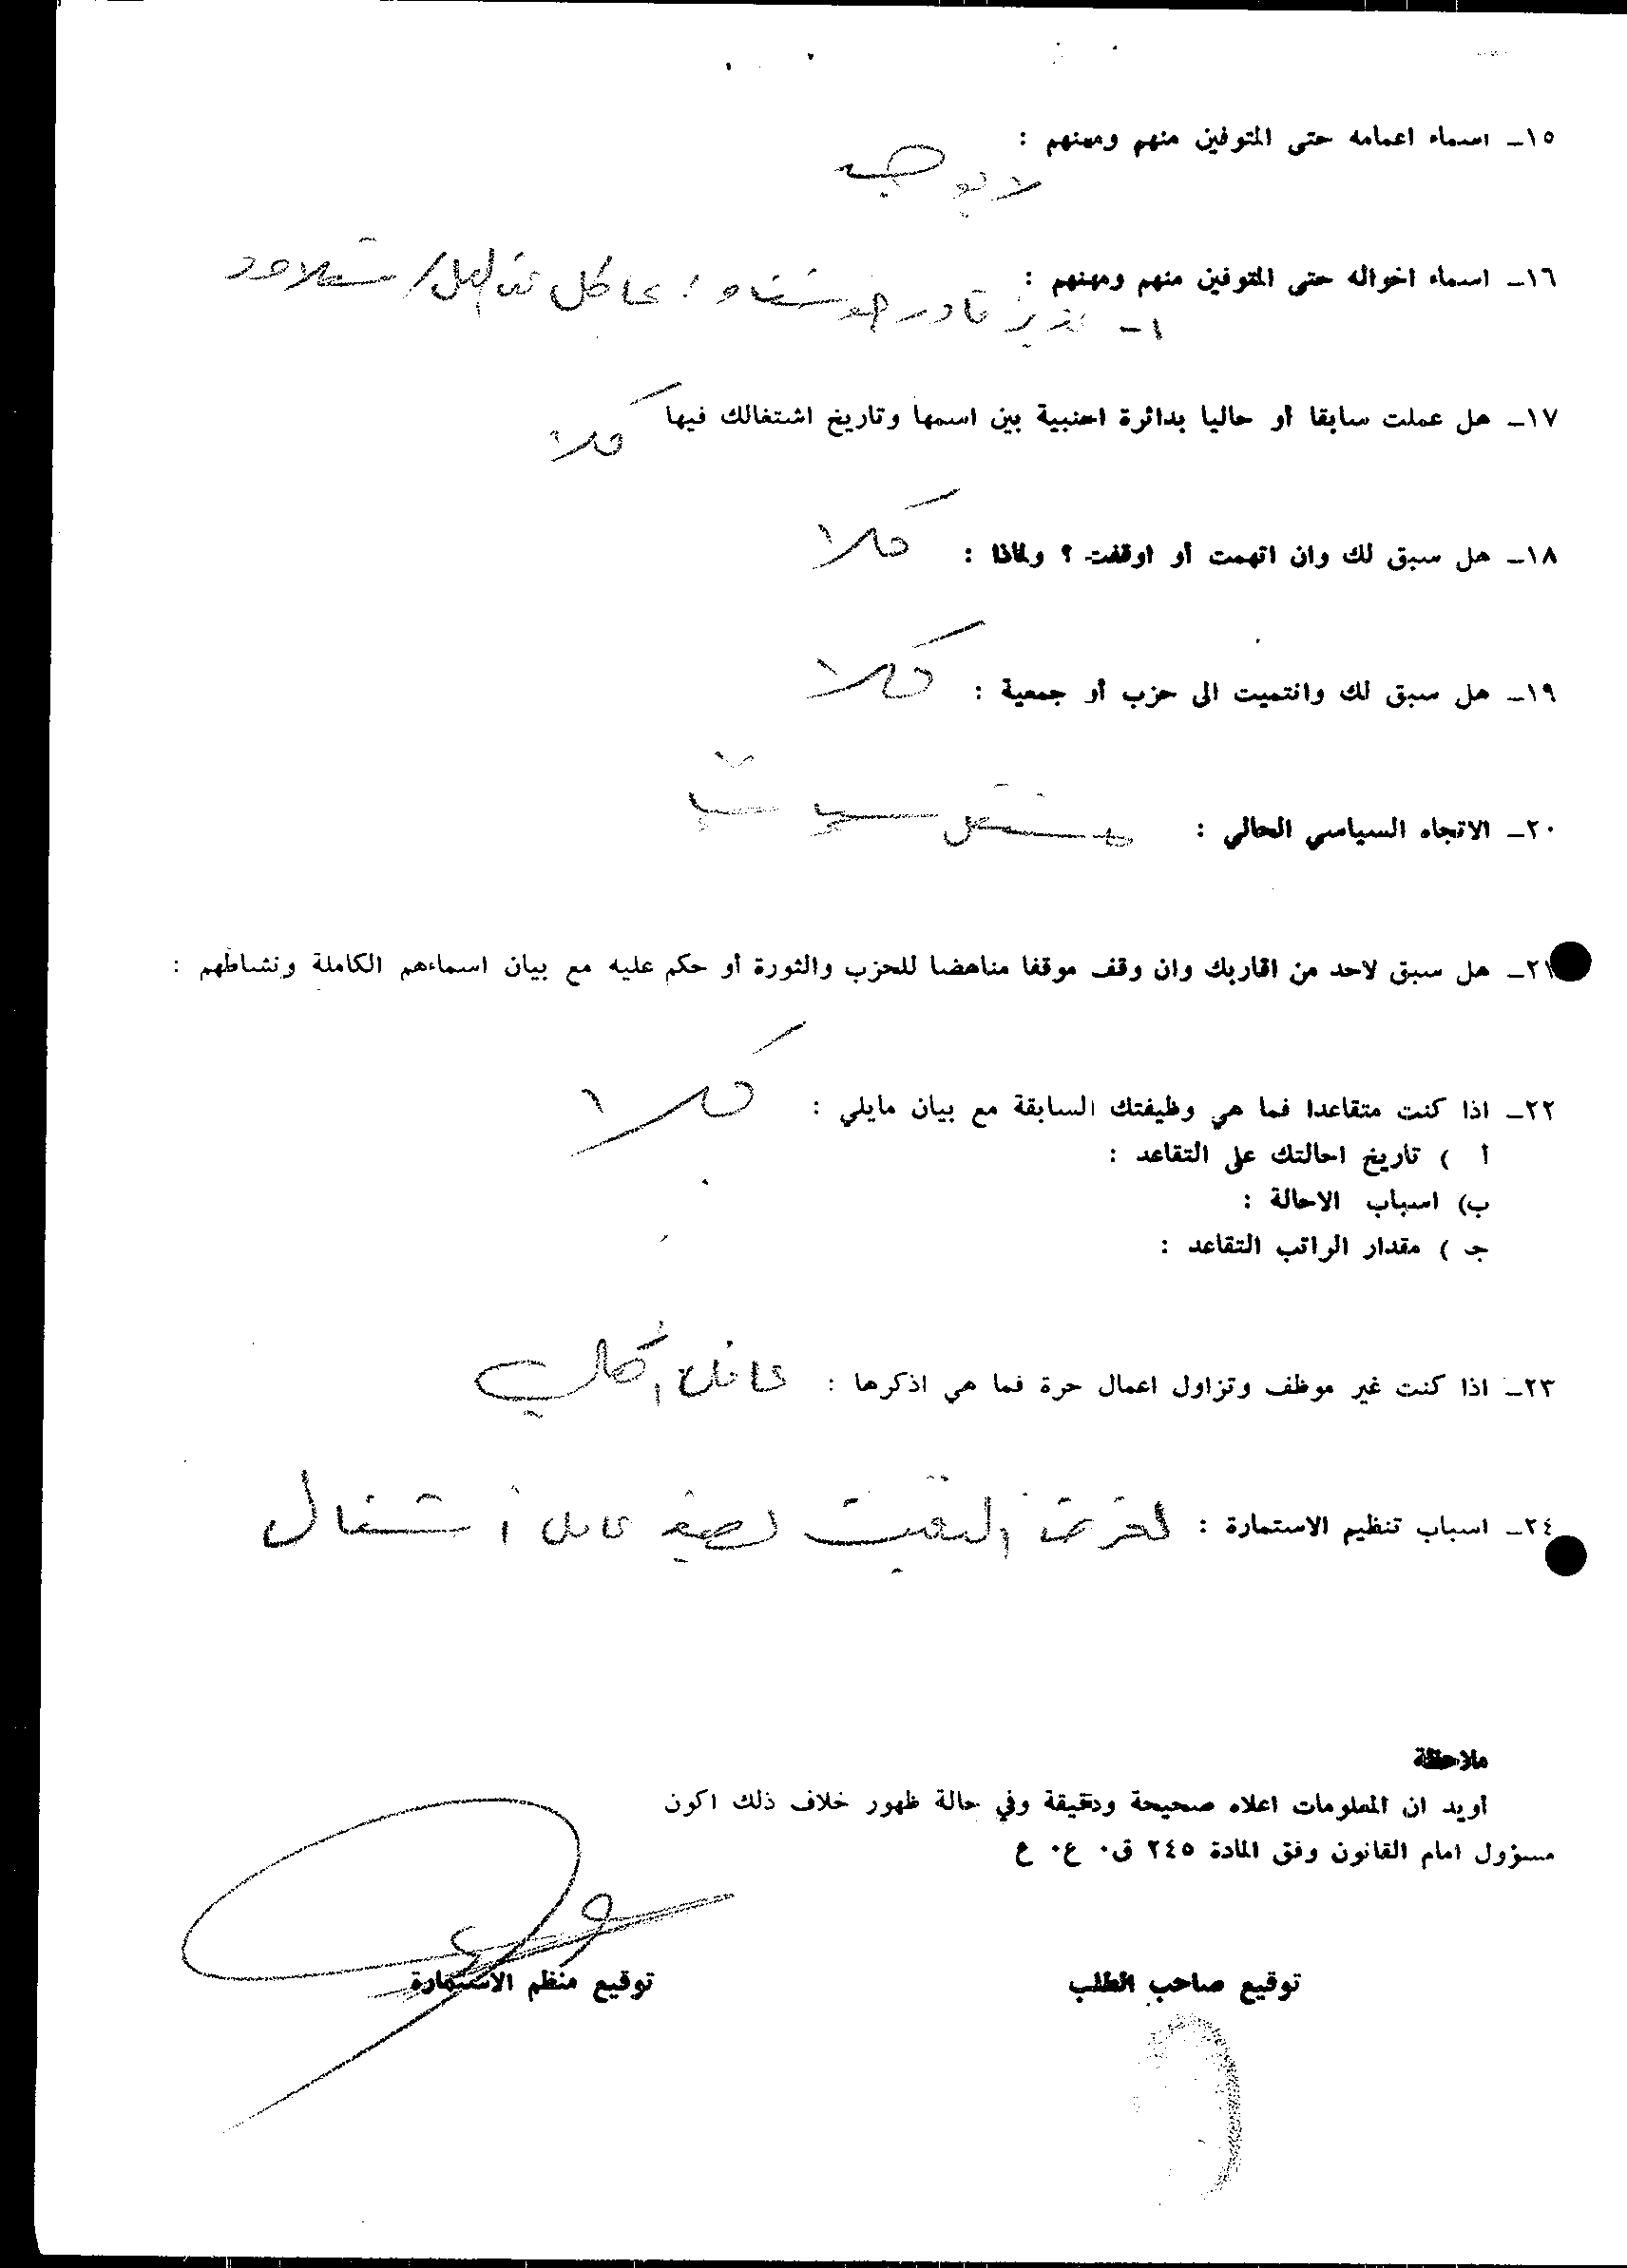 ١٥ـ اسماء اعمامه حتى المتوفين منهم ومهنهم :
لا يوجد
١٦ـ اسماء اخواله حتى المتوفين منهم ومهنهم :
١ـ نذير قادر خوشناو / عامل / شقلاوة
١٧ـ هل عملت سابقا أو حاليا بدائرة اجنبية بين اسمها وتاريخ اشتغالك فيها
كلا
١٨ـ هل سبق لك وان اتهمت أو اوقفت ؟ ولماذا : كلا
١٩ـ هل سبق لك وانتميت الى حزب أو جمعية : كلا
٢٠ـ الاتجاه السياسي الحالي : مستقل
٢١ـ هل سبق لاحد من اقاربك وان وقف موقفا مناهضا للحزب والثورة أو حكم عليه مع بيان اسماءهم الكاملة ونشاطهم :
كلا
٢٢ـ اذا كنت متقاعدا فما هي وظيفتك السابقة مع بيان مايلي :
أ ) تاريخ احالتك على التقاعد :
ب) اسباب الاحالة :
جـ ) مقدار الراتب التقاعد :
٢٣ـ اذا كنت غير موظف وتزاول اعمال حرة فما هي اذكرها :
٢٤ـ اسباب تنظيم الاستمارة : لغرض التعيين بصفة عامل اشتغال
ملاحظة
أويد ان المعلومات اعلاه صحيحة ودقيقة وفي حالة ظهور خلاف ذلك اكون
مسؤول امام القانون وفق المادة ٢٤٥ ق٠ ع٠ ع
توقيع صاحب الطلب
توقيع منظم الاستمارة